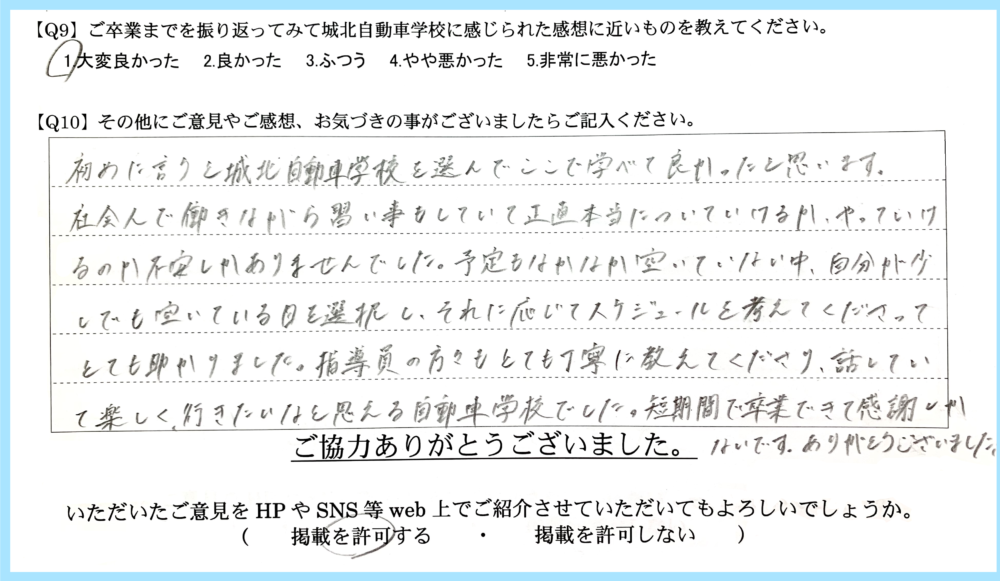 【Q9】ご卒業までを振り返ってみて城北自動車学校に感じられた感想に近いものを教えてください。
1.大変良かった 2.良かった 3.ふつう 4.やや悪かった 5.非常に悪かった
【Q10】その他にご意見やご感想、お気づきの事がございましたらご記入ください。
初めに言うと城北自動車学校を選んでここで学べて良かったと思います。
社会人で働きながら習い事もしていて正直本当についていけるか、やっていけ
るのか不安しかありませんでした。予定もなかなか空いていない中、自分が少
しでも空いている日を選択し、それに応じてスケジュールを考えてくださって
とても助かりました。指導員の方々もとても丁寧に教えてくださり、話してい
て楽しく、行きたいなと思える自動車学校でした。短期間で卒業できて感謝しか
ないです。ありがとうございました。
ご協力ありがとうございました。
いただいたご意見をHPやSNS等web上でご紹介させていただいてもよろしいでしょうか。
( 掲載を許可する ・ 掲載を許可しない )